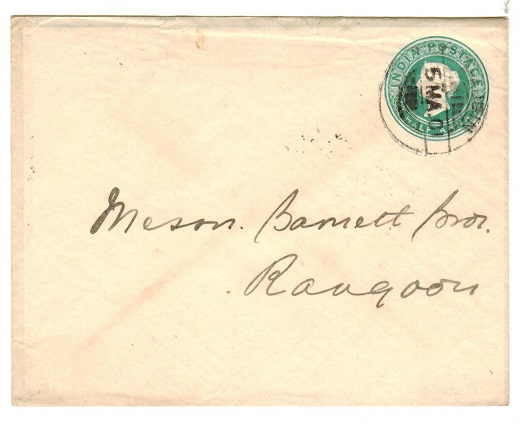 INDIA POSTAGE
HALF
Messrs. Barnett Bros.
Rangoon